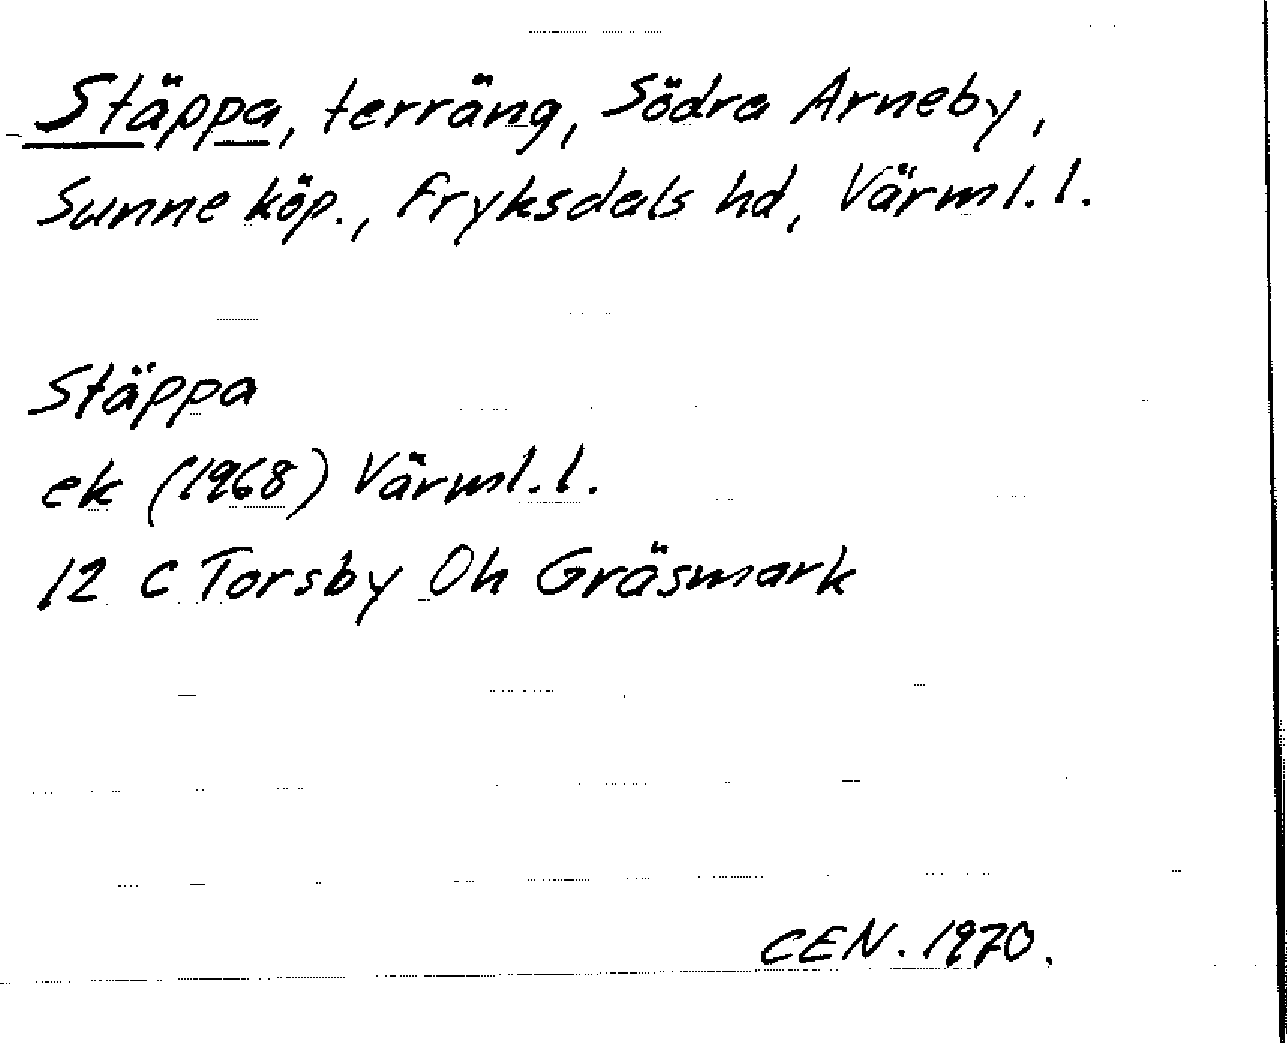 Stäppa, terräng, Södra Arneby,
Sunne köp., Fryksdals hd, Värml. l.
Stäppa
ek (1968) Värml. l.
12 C Torsby Oh Gräsmark
CEN. 1970.